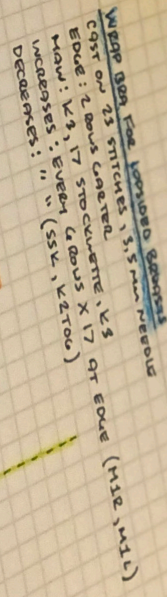 WRAP BRA FOR LOPSIDED BOOBS
CAST ON 23 STITCHES, 3,5 MM NEEDLE
EDGE: 2 ROWS GARTER
MAIN: K3, 17 STOCKINETTE, K3
INCREASES: EVERY 4 ROWS X 17 AT EDGE (M1R, M1L)
DECREASES: " " (SSK, K2TOG)